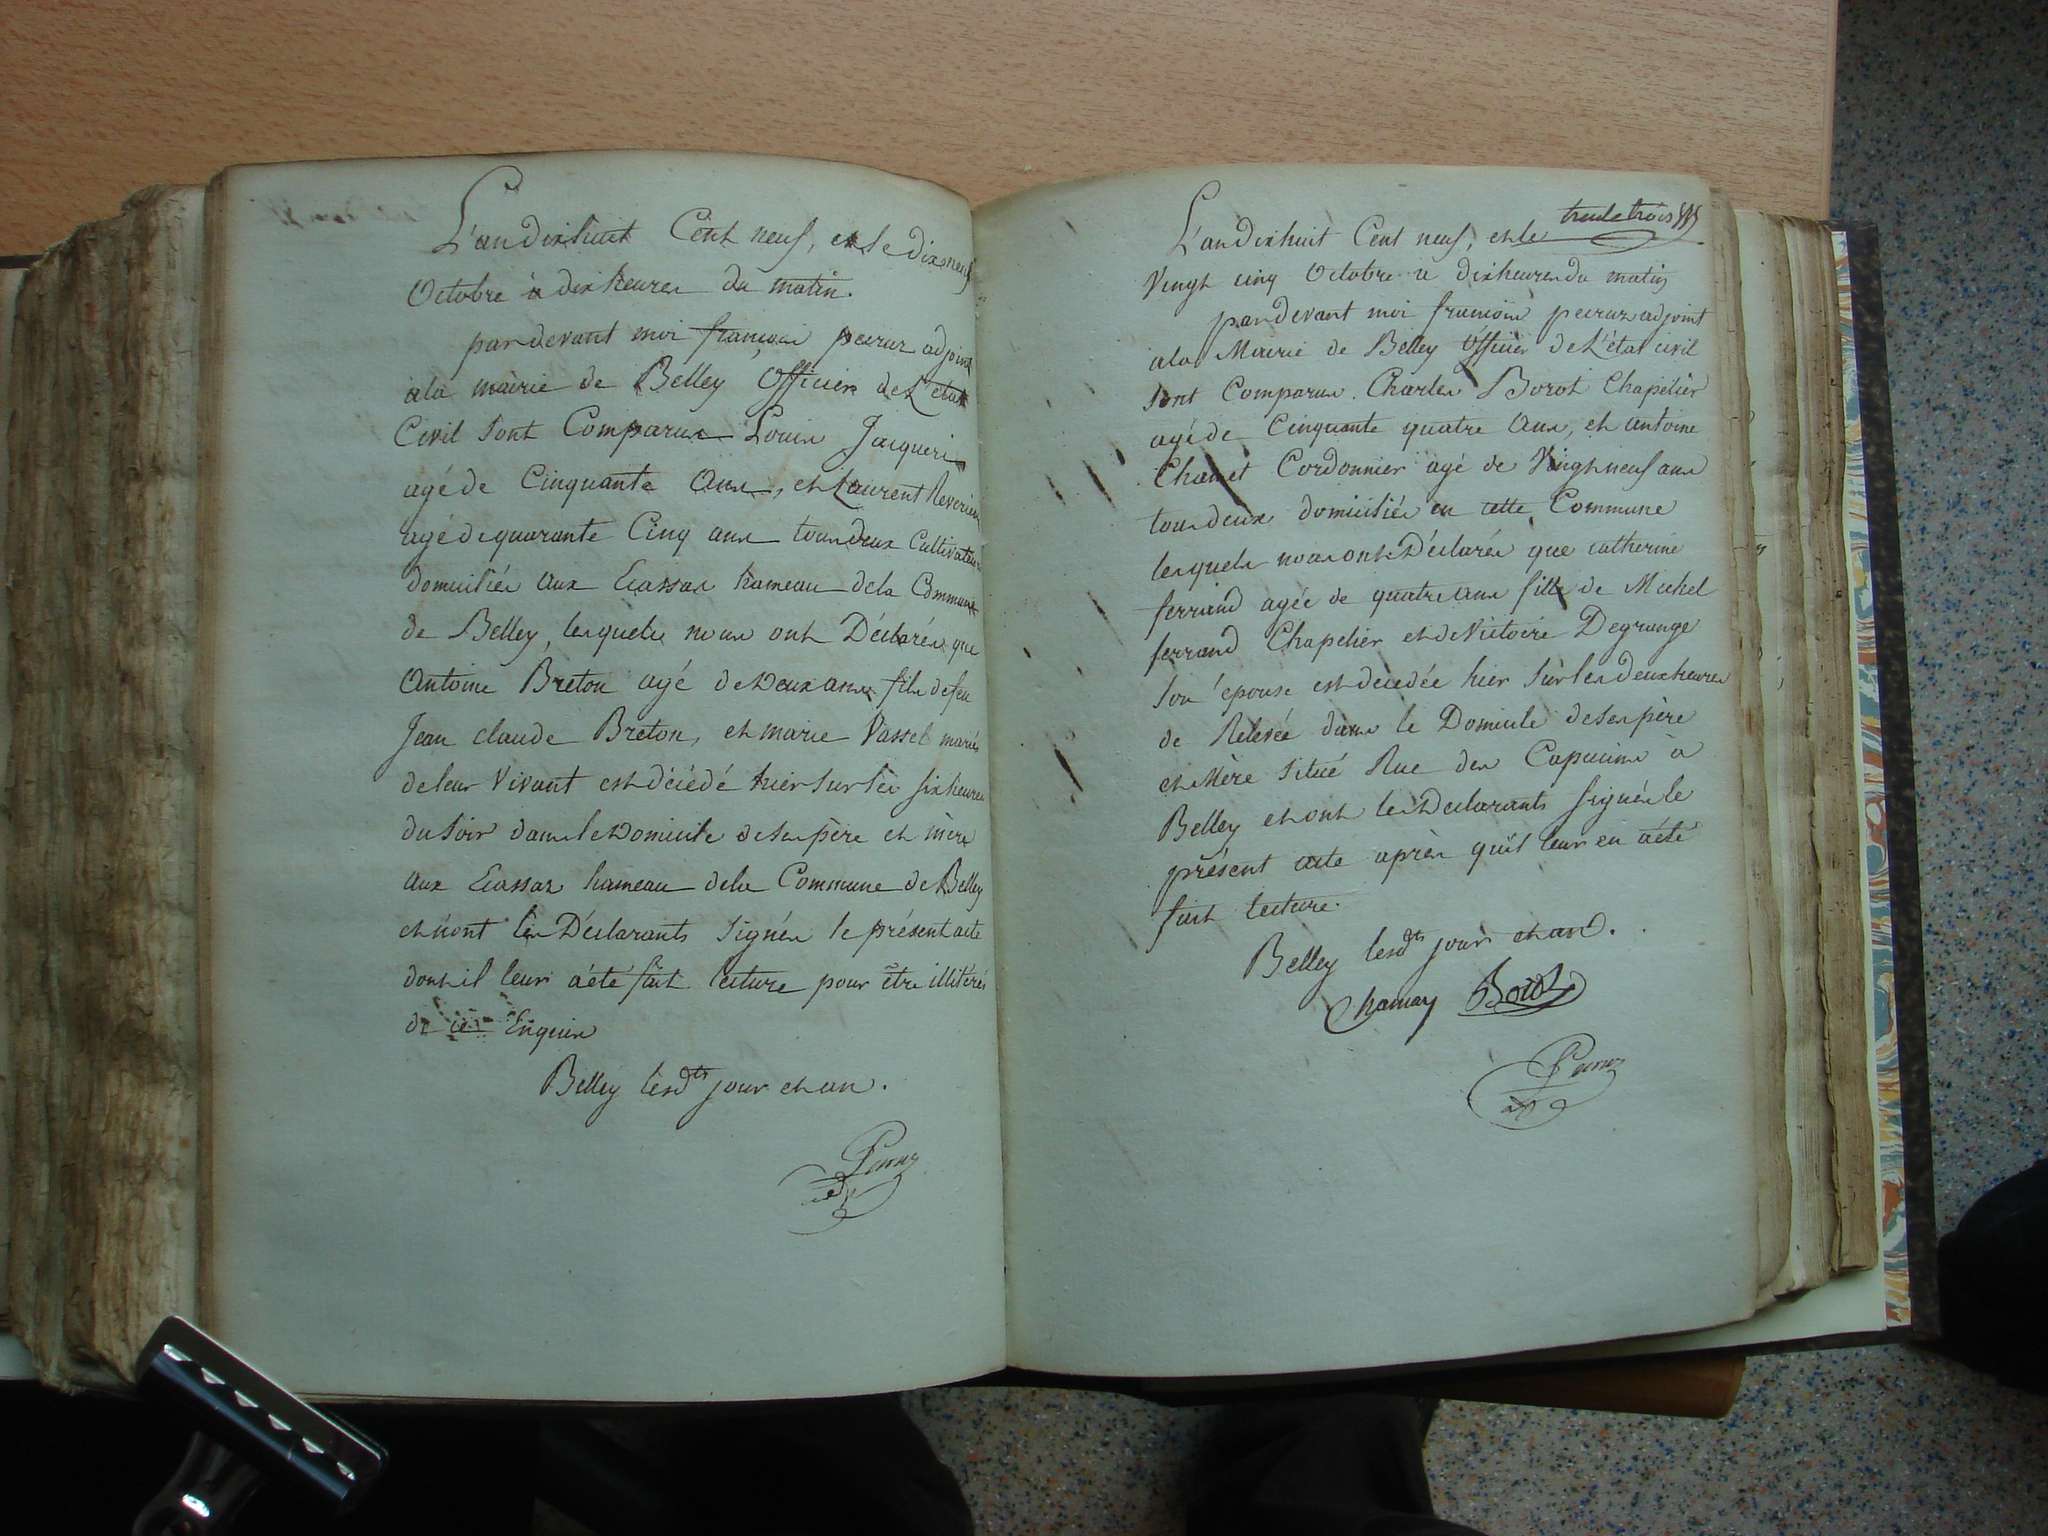 L'an dix huit Cent neuf, et le dix neuf
Octobre à dix heures du matin.
pardevant moi françois peiruz adjoint
ala mairie de Belley Officier de L'état
Civil sont Comparus Louis Jacqueri
agé de Cinquante ans, et Laurent Reverien
agé de quarante Cinq ans tous deux Cultivateurs
domiciliés aux Ecassaz hameau dela Commune
de Belley, lesquels nous ont Déclarés que
Antoine Breton agé de Deux ans fils de feu
Jean claude Breton, et marie Vassel mariés
de leur Vivant est décédé hier sur les six heures
du soir dans le Domicile de ses père et mère
aux Ecassaz hameau dela Commune de Belley
et n'ont les Déclarants signés le présent acte
dont il leur a été fait lecture pour être illitérés
de ce Enquis
Belley lesdts jour et an.
Peiruz
adj
trente trois
L'an dix huit Cent neuf, et le
Vingt cinq Octobre à dix heures du matin
pardevant moi francois peiruz adjoint
ala Mairie de Belley Officier de L'état civil
sont Comparus Charles Borot Chapelier
agé de Cinquante quatre ans, et antoine
Chamet Cordonnier agé de Vingt neuf ans
tous deux domiciliés en cette Commune
lesquels nous ont Déclarés que catherine
ferrand agée de quatre ans fille de Michel
ferrand Chapelier et de Victoire Degrange
son épouse est décédée hier sur les deux heures
de Relevée dans le Domicile de ses père
et Mère situé Rue des Capucins à
Belley et ont les Déclarants signés le
présent acte après qu'il leur en a été
fait lecture.
Belley lesdts jour et an.
Chamay Borot
Peiruz
adj